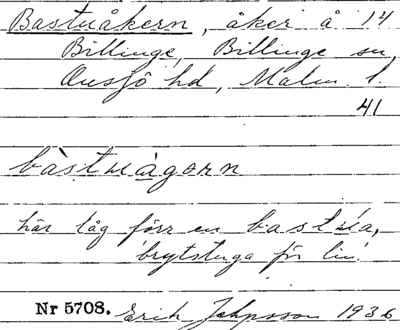 Bastuåkern, åker å 14
Billinge, Billinge sn,
Onsjö hd, Malm. l.
41
bàstuàgorn
här låg förr en bastúa,
brytstuga för lin.
Nr 5708. Erik Johnsson 1936